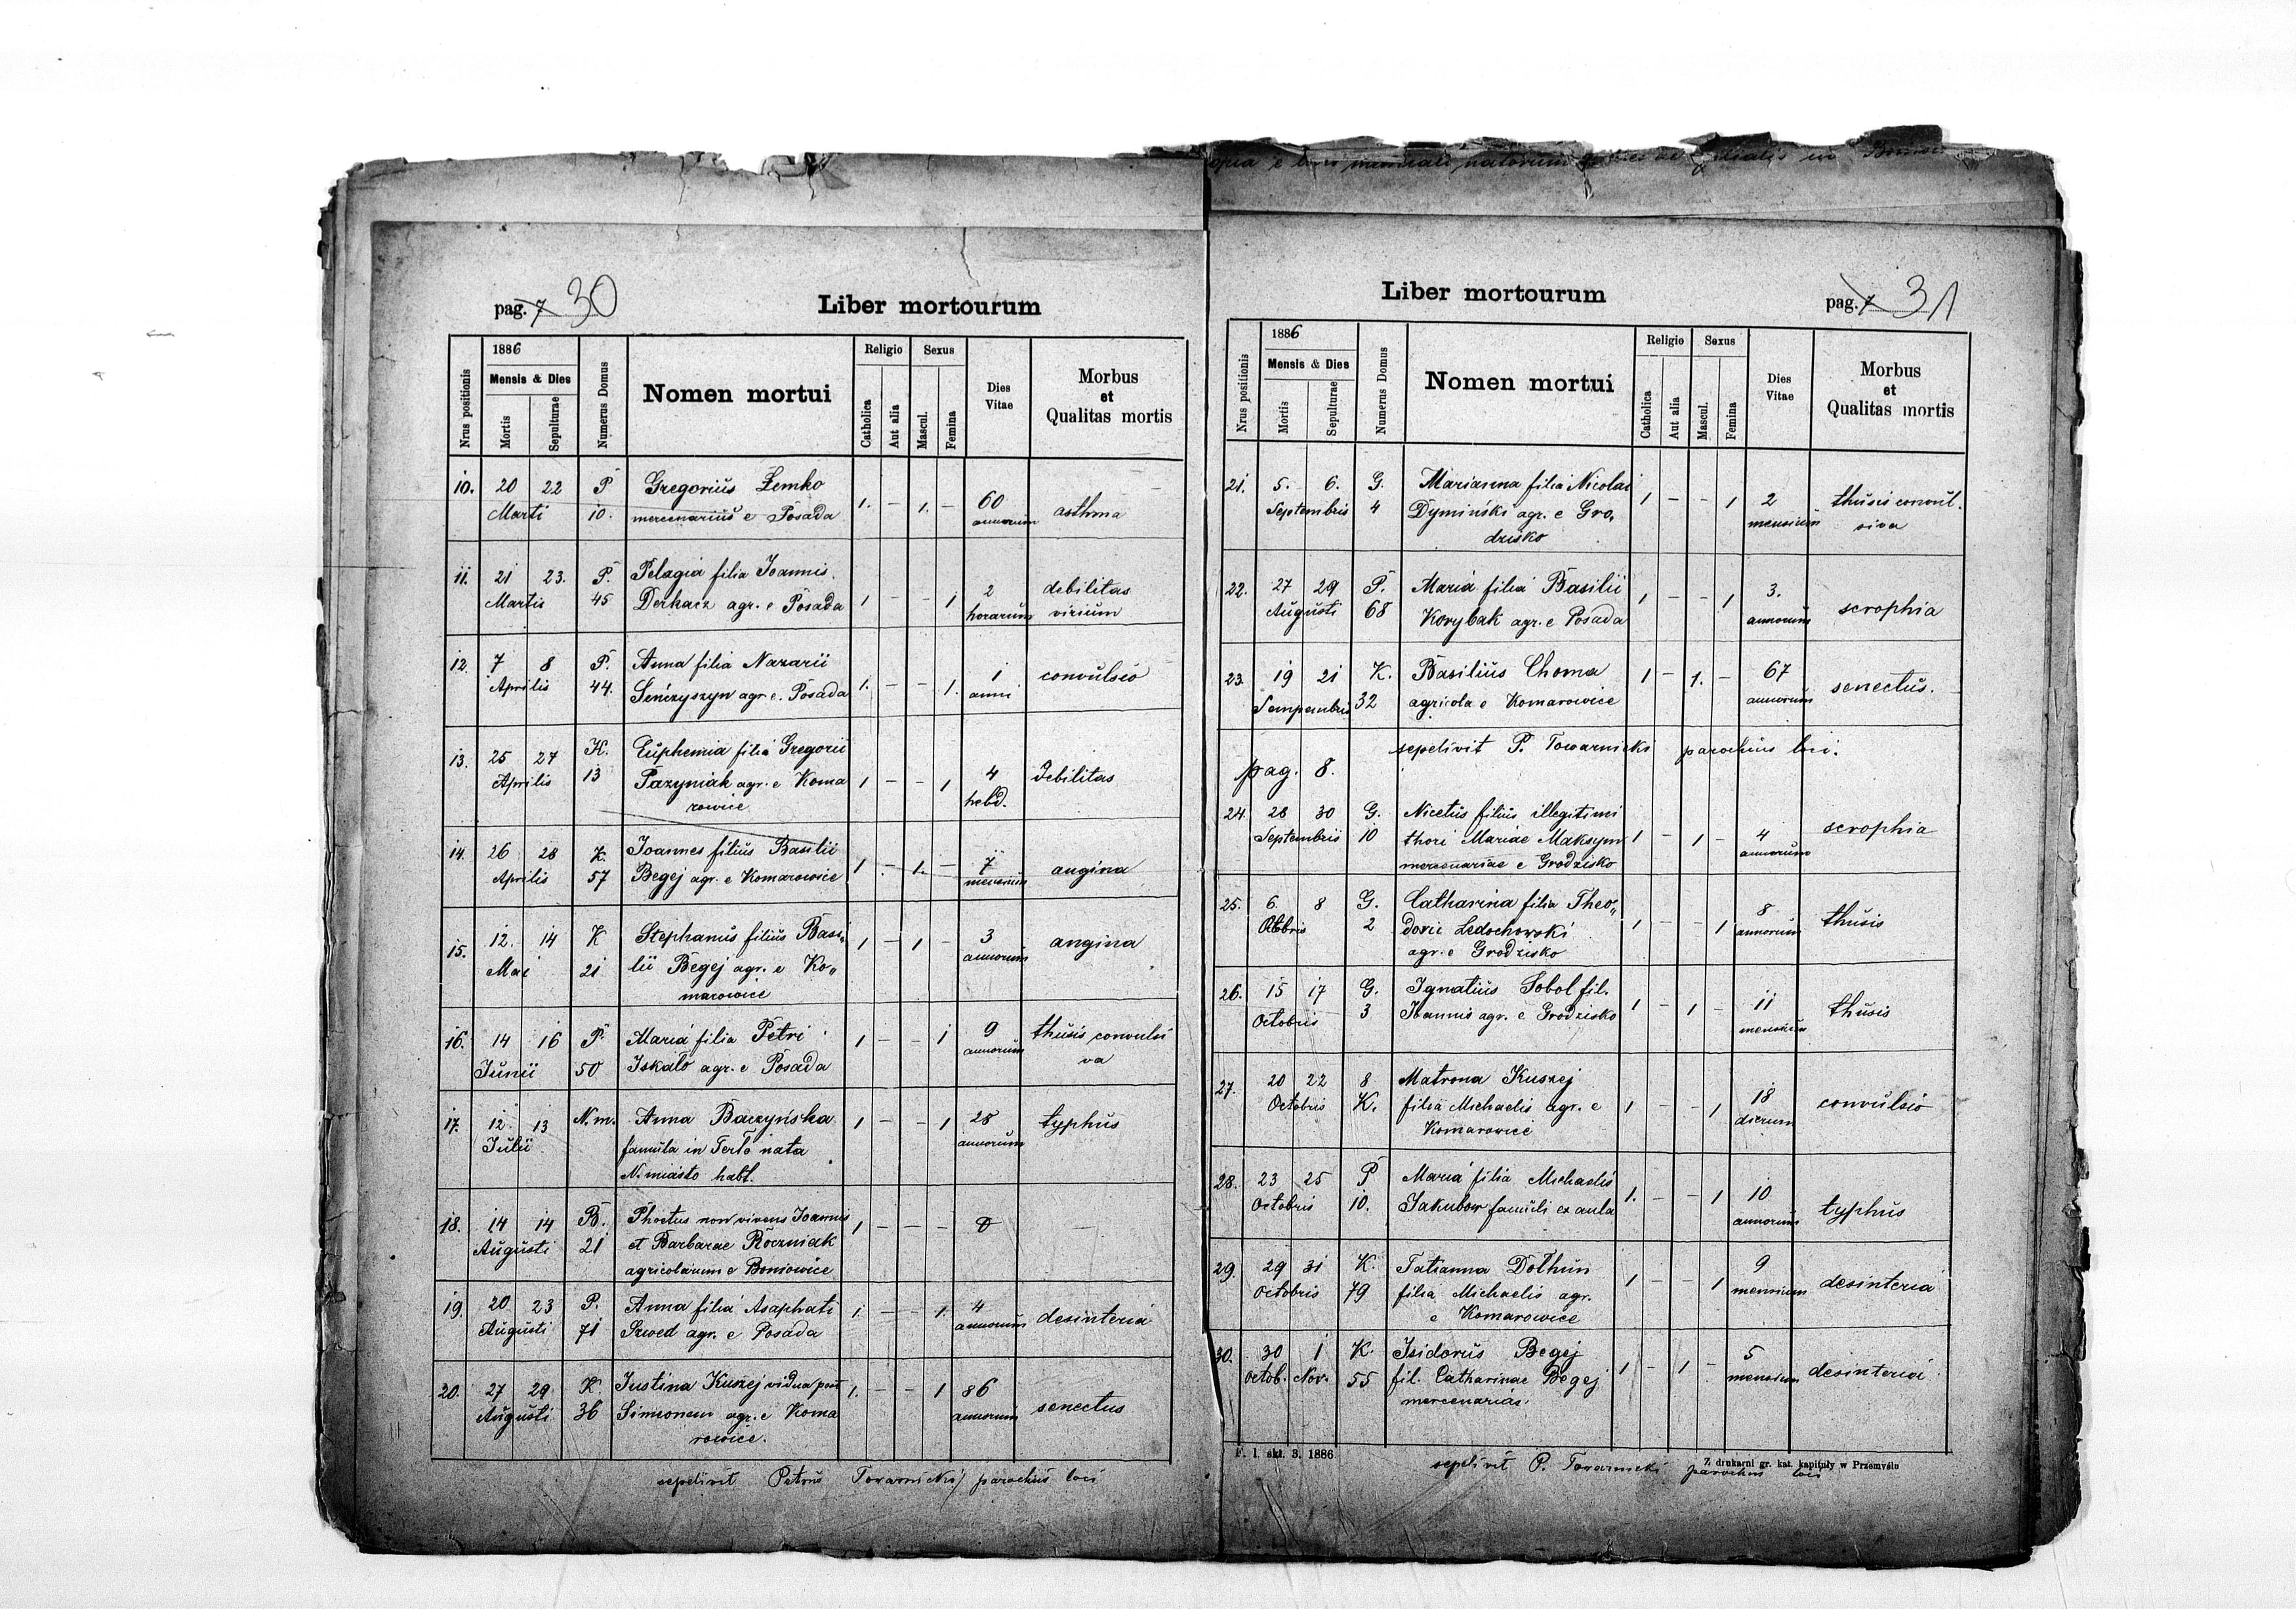 pag. 7 30
Liber mortourum
Nrus positionis
1886
Mensis & Dies
Mortis
Sepulturae
Numerus Domus
Nomen mortui
Religio
Catholica
Aut alia
Sexus
Mascul.
Femina
Dies
Vitae
Morbus
et
Qualitas mortis
10. 20 22 P Gregorius Łemko
Marti 10. mercenarius e Posada 1. - 1. - 60 annorum asthma
11. 21 23. P. Pelagia filia Joannis
Martis 45 Derkacz agr. e Posada 1 - - 1 2 horarum debilitas
virium
12. 7 8 P. Anna filia Nazarii
Aprilis 44. Senczyszyn agr. e. Posada 1. - - 1. 1 anni convulsio
13. 25 27 K. Euphemia filia Gregorii
Aprilis 13 Pazyniak agr. e Koma 1 - - 1 4 hebd. Debilitas
rowice
14. 26 28 K. Joannes filius Basilii
Aprilis 57 Begej agr. e Komarowice 1 - 1. - 7 mensium angina
15. 12. 14 K Stephanus filius Basi„
Mai 21 lii Begej agr. e Ko„ 1 - 1 - 3 annorum angina
marowice
16. 14 16 P. Maria filia Petri
Junii 50 Iskało agr. e Posada 1 - - 1 9 annorum thusis convulsi
va
17. 12. 13 N.m. Anna Baczyńska
Julii famula in Terło nata 1 - - 1 28 annorum typhus
N. miasto habt.
18. 14 14 B. Phoetus non vivens Joannis
Augusti 21 et Barbarae Roczniak 1 - - - 0
agricolarum e Boniowice
19. 20 23 P. Anna filia Asaphati
Augusti 71 Szwed agr. e Posada 1. - - 1. 4 annorum desinteria
20. 27 29 K. Justina Kuszej vidua post
Augusti 36 Simeonem agr. e Koma 1. - - 1 86 annorum senectus
rowice.
sepelivit Petrus Towarnicki parochus loci
Liber mortourum
pag. 7 31
Nrus positionis
1886
Mensis & Dies
Mortis
Sepulturae
Numerus Domus
Nomen mortui
Religio
Catholica
Aut alia
Sexus
Mascul.
Femina
Dies
Vitae
Morbus
et
Qualitas mortis
21. 5. 6. G. Marianna filia Nicolai
Septembris 4 Dymiński agr. e Gro„ 1 - - 1 2 mensium thusis convul.
siva
dzisko
22. 27 29 P. Maria filia Basilii
Augusti 68 Korybak agr. e Posada 1 - - 1 3. annorum scrophia
23. 19 21 K. Basilius Choma
Sempembris 32 agricola e Komarowice 1 - 1. - 67 annorum senectus.
sepelivit P. Towarnicki parochus loci.
pag. 8.
24. 28 30 G. Nicetus filius illegitimi
Septembrii 10 thori Mariae Maksym 1 - 1 - 4 annorum scrophia
mercenariae e Grodzisko
25. 6. 8 G. Catharina filia Theo„
Otobris 2 dorii Ledochowski 1 - - 1 8 annorum thusis
agr. e Grodzisko
26. 15 17 G. Ignatius Sobol fil.
Octobris 3 Joannis agr. e Grodzisko 1 - 1 - 11 mensium thusis
27. 20 22 8 Matrona Kuszej
Octobris K. filia Michaelis agr. e 1 - - 1 18 dierum convulsio
Komarowice
28. 23 25 P Maria filia Michaelis
Octobris 10. Jakubow famuli ex aula 1. - - 1 10 annorum typhus
29. 29 31 K. Tatianna Dołhun
Octobris 79 filia Michaelis agr. 1 - - 1 9 mensium desinteria
e Komarowice
30. 30 1 K. Isidorus Begej
Octob. Nov. 55 fil. Catharinae Begej 1 - 1 - 5 mensium desinteria
mercenarias.
F. l. skł. 3. 1886
Z drukarni gr. kat. kapituły w Przemyślu
sepelivit P. Towarnicki parochus loci